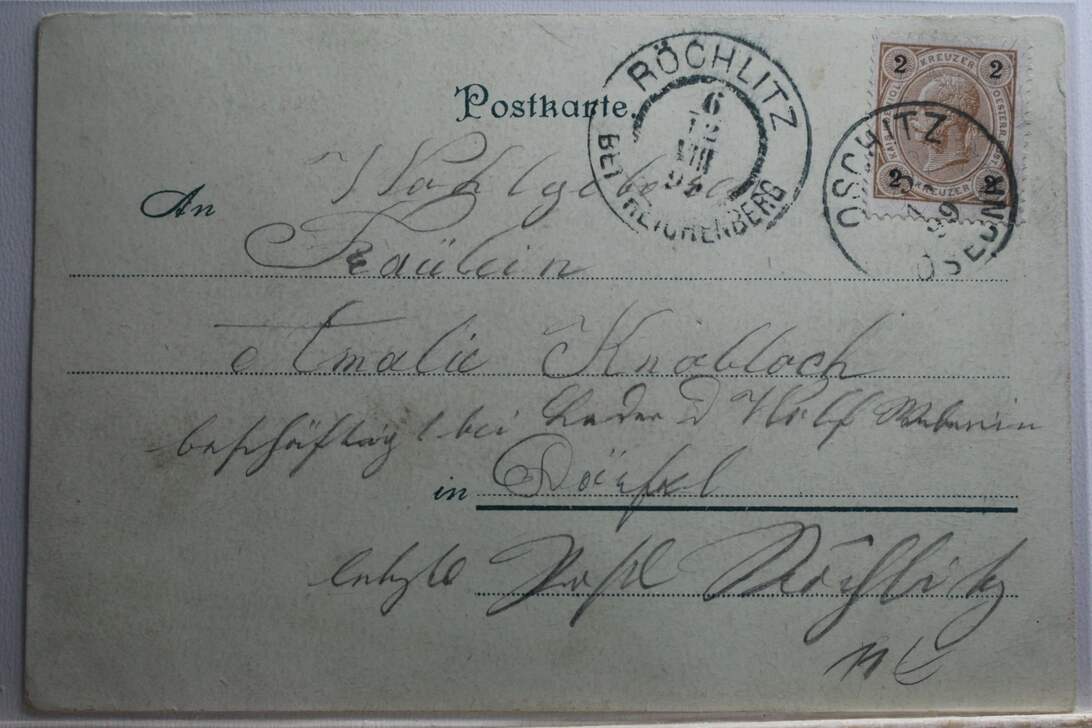 Postkarte.
RÖCHLITZ
BEI REICHENBERG
6
12
VIII
99
2 KREUZER 2
2 KREUZER 2
OSCHITZ
OSEČNÁ
An
Wohlgeboren
Fräulein
Amalie Knobloch
beschäftigt bei Weberin
in Dörfel
letzte Post Röchlitz